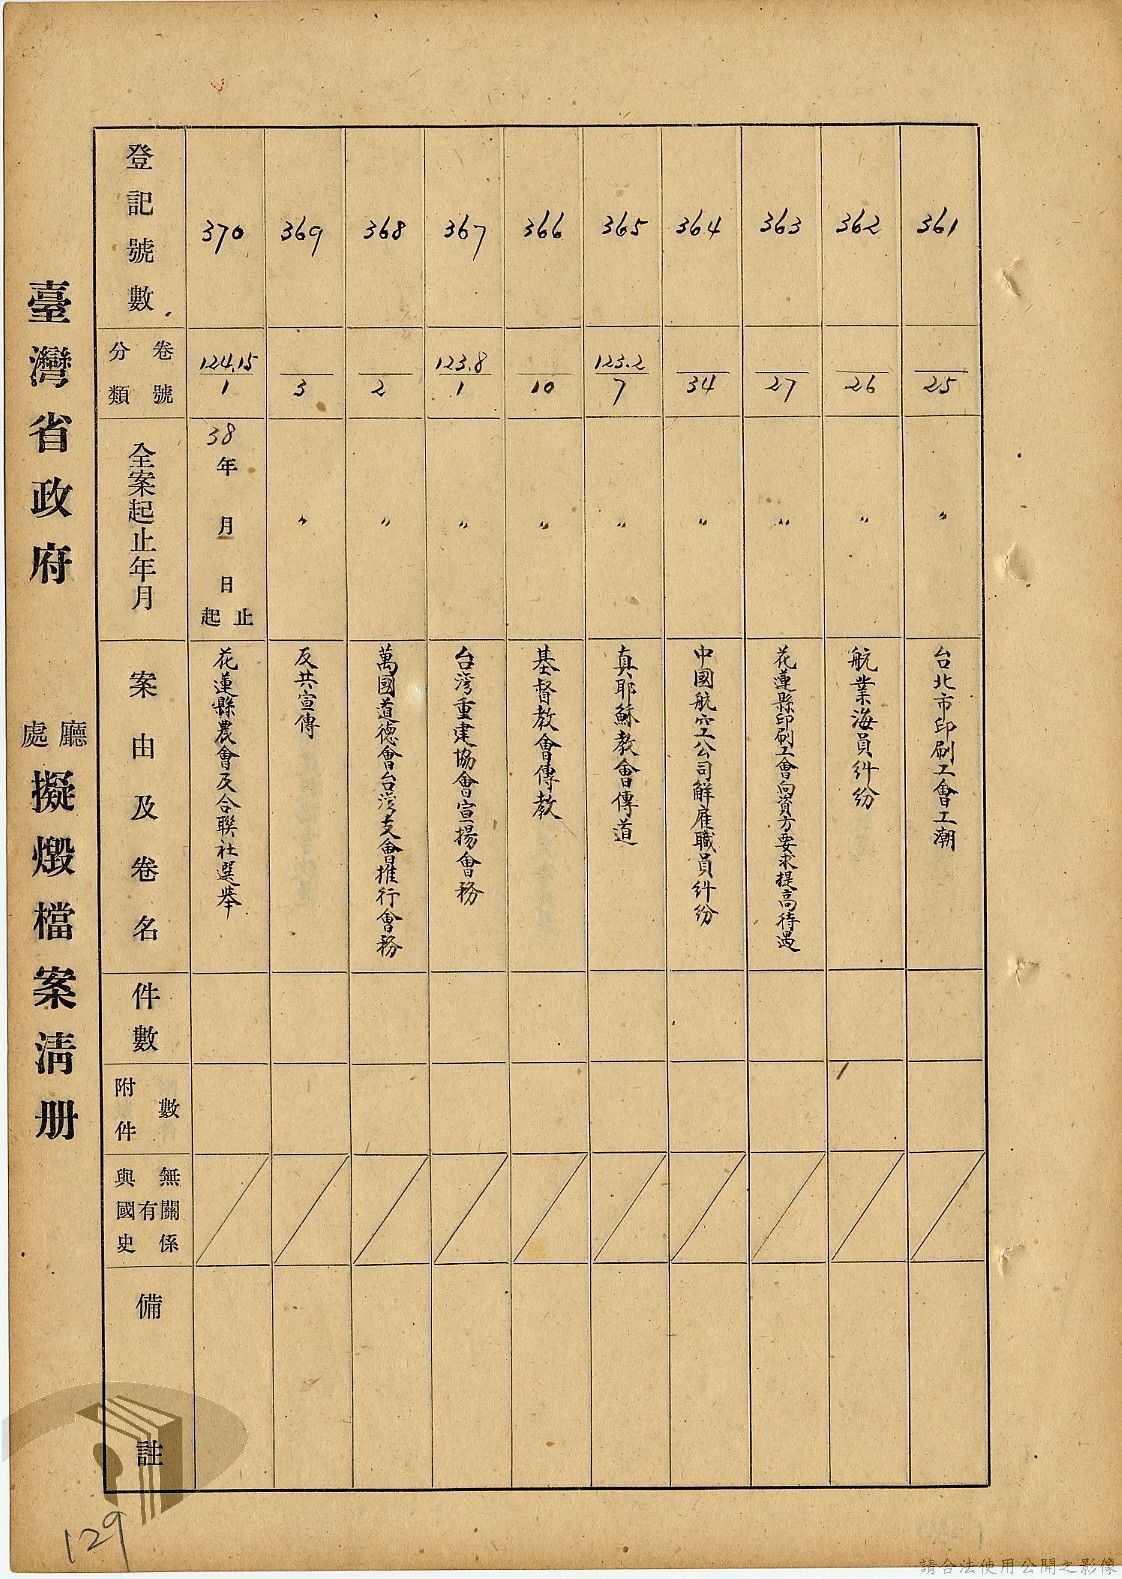 臺灣省政府 廳處 擬燬檔案清册
登記號數
卷號
分類
全案起止年月
案由及卷名
件數
附件數
與國史有無關係
備註
370
124.15
1
38年 月 日
起止
花蓮縣農會及合聯社選舉
369
3
〃
反共宣傳
368
2
〃
萬國道德會台灣支會推行會務
367
123.8
1
〃
台灣重建協會宣揚會務
366
10
〃
基督教會傳教
365
123.2
7
〃
真耶穌教會傳道
364
34
〃
中國航空公司解雇職員糾紛
363
27
〃
花蓮縣印刷工會向資方要求提高待遇
362
26
〃
航業海員糾紛
361
25
〃
台北市印刷工會工潮
129
請合法使用公開之影像